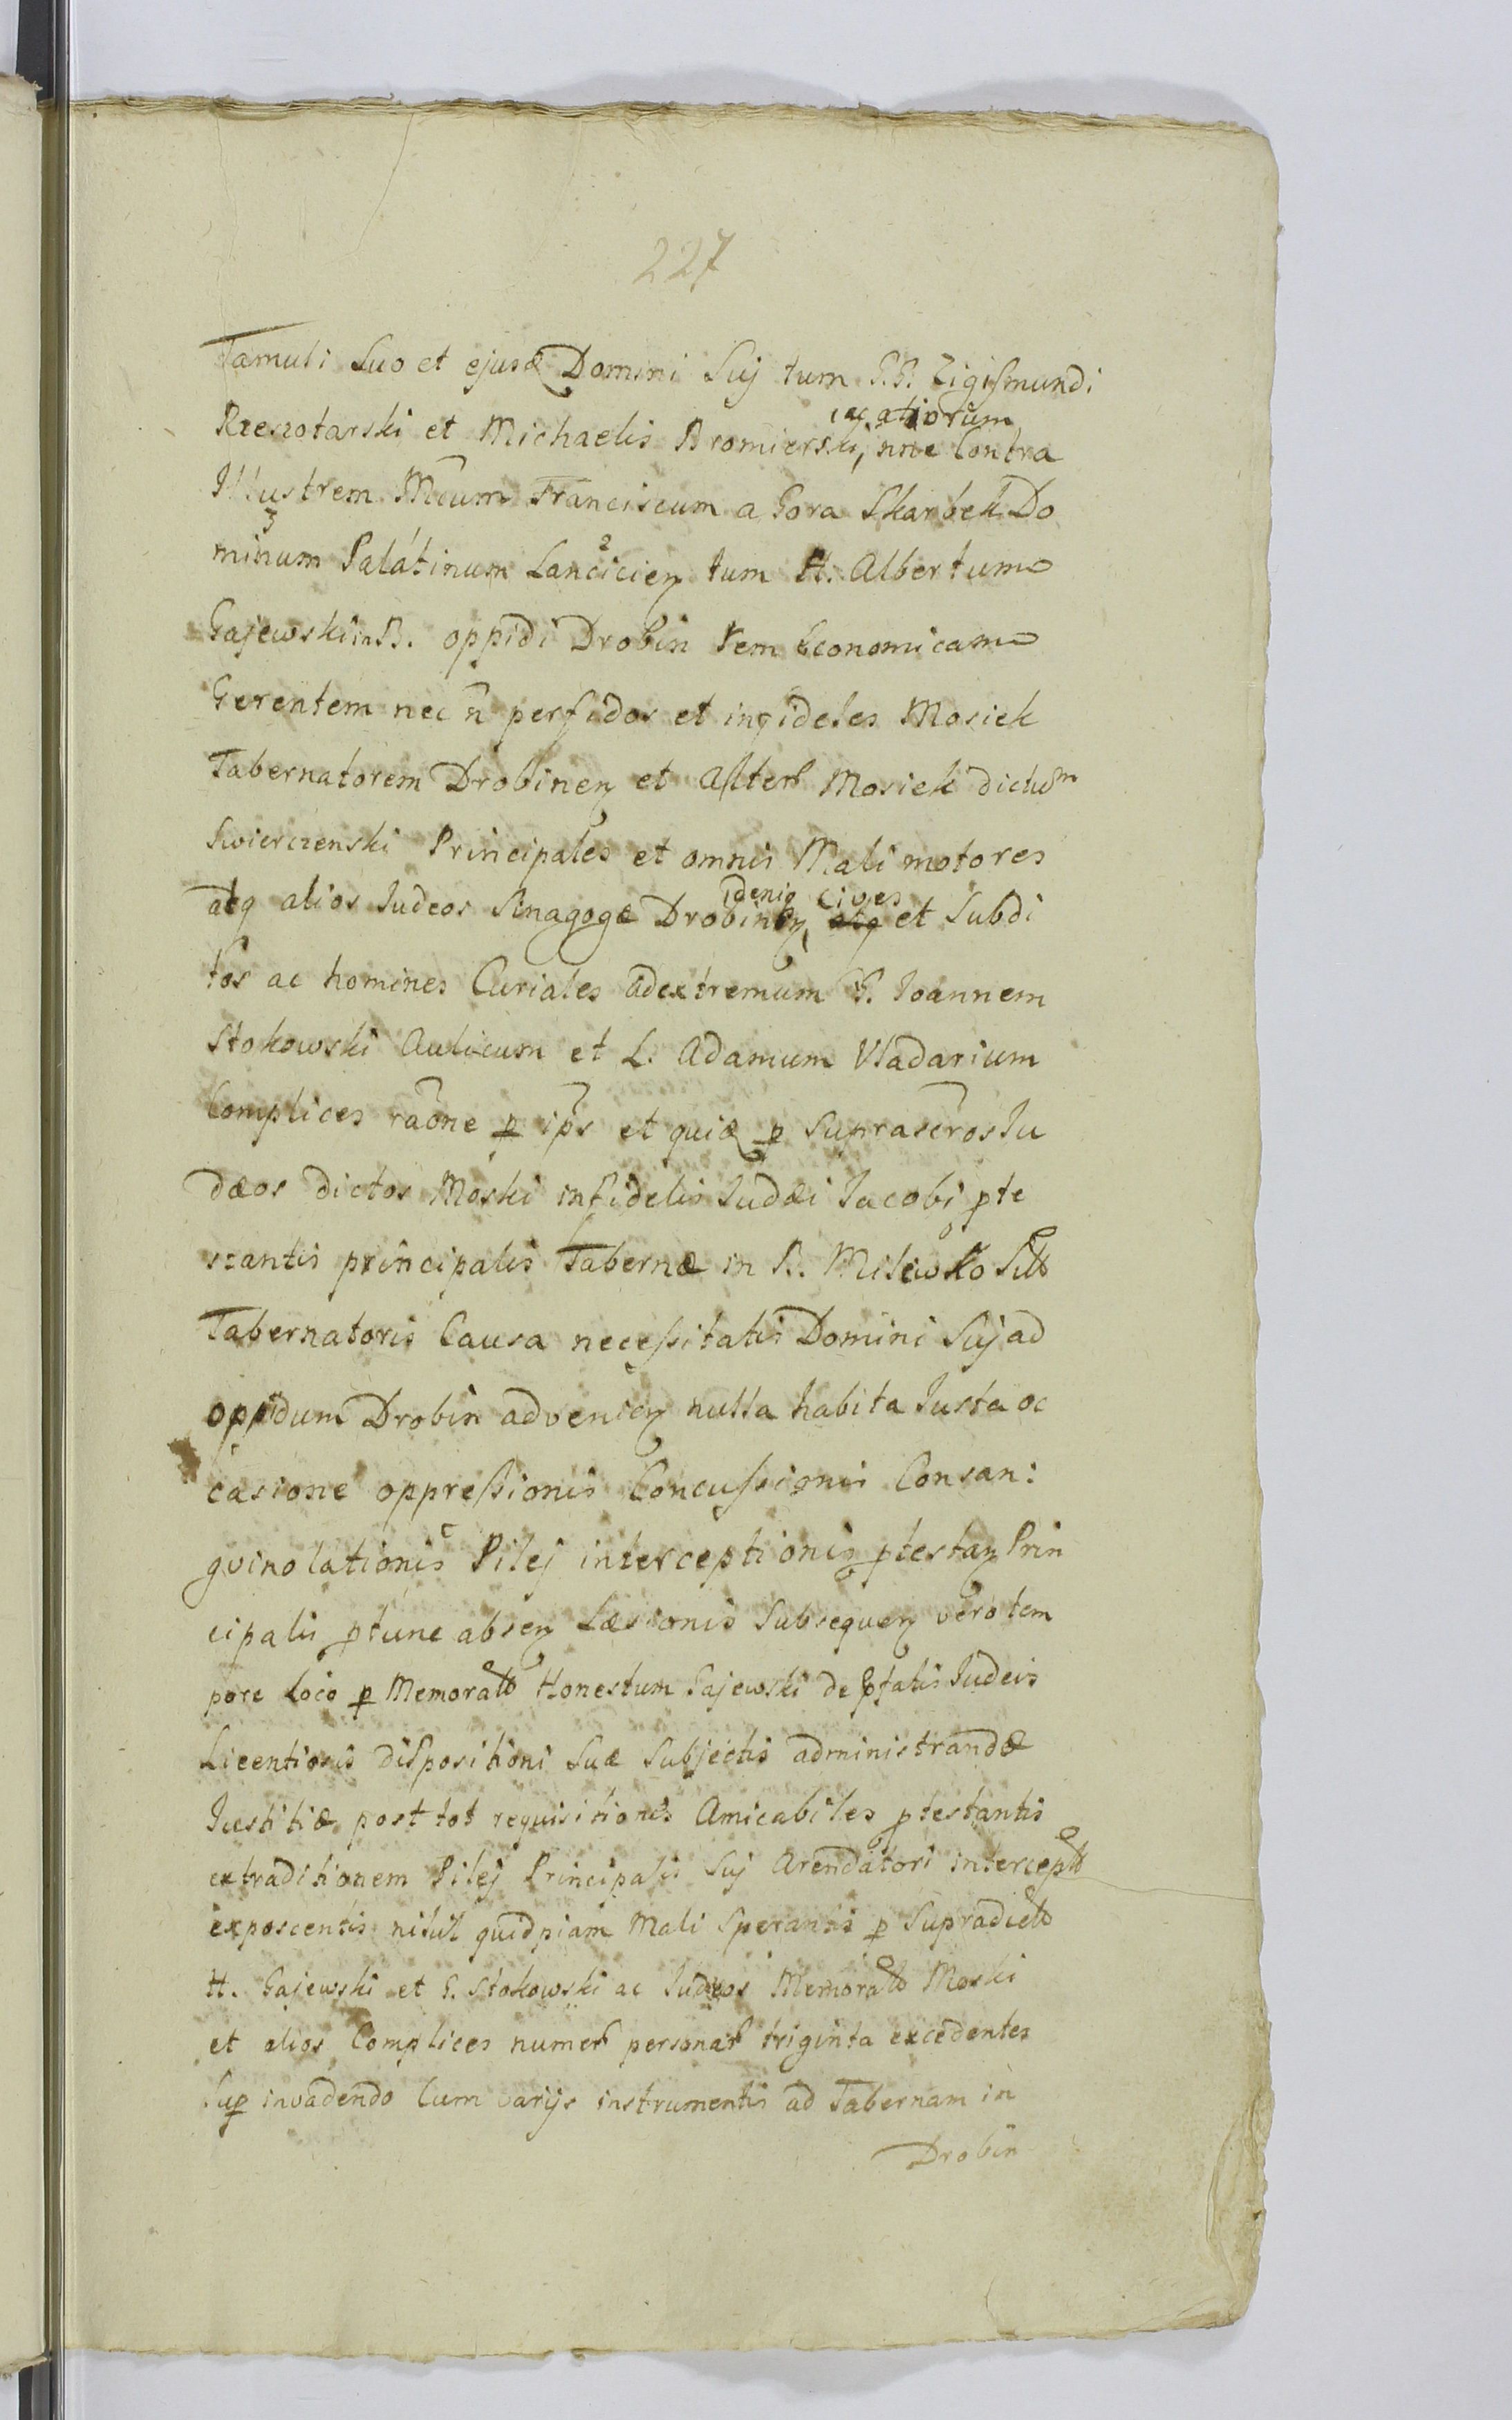 227
Famuli Suo et ejusd Domini Suj tum G.G. Zigismundi
ac aliorum
Rzeszotarski et Michaelis Bromierski, nne Contra
Illustrem Mcum Franciscum a Gora Skarbek Do
minum Palatinum Lancicien tum H. Albertum
Gajewski in B. oppidi Drobin rem Economicam
Gerentem nec n perfidos et infideles Mosiek
Tabernatorem Drobinen et Alter Mosiek dictum
Swierczenski Principales et omnis Mali motores
idenq cives
atq alios Judeos Sinagogæ Drobinen, et Subdi
tos ac homines Curiales adextremum G. Joannem
Stokowski Aulicum et L. Adamum Vladarium
Complices raone p ips et quia p Suprascros Ju
dæos dictos Moski infidelis Judæi Jacobi pte
stantis principalis Tabernæ in B. Milewko
Tabernatoris Causa necessitatis Domini Suj ad
oppidum Drobin advenien nulla habita Justa oc
casione oppressionis Concussionis Consan:
gvinolationis Pilej interceptionis ptestan Prin
cipalis ptunc absen Læsionis Subsequen vero tem
pore loco p Memorato Honestum Gajewski de pfatis Judeis
Licentiosis dispositioni Suæ Subjectis administrandæ
Justitiæ post tot requisitiones Amicabiles ptestantis
extraditionem Pilej Principalis Suj Arendatori intercept
exposcentis nihil quidpiam Mali Sperantis p Supradicto
H. Gajewski et G. Stokowski ac Judæos Memorato Moski
et alios Complices numer personar triginta excedentes
Sup invadendo Cum varijs instrumentis ad Tabernam in
Drobin